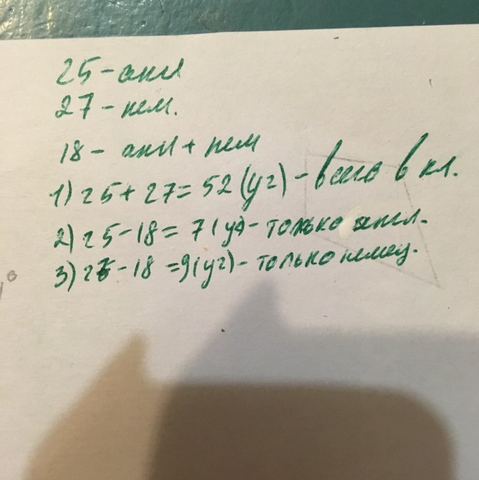 25 - англ
27 - нем.
18 - англ + нем
1) 25 + 27 = 52 (уч) - всего в кл.
2) 25 - 18 = 7 (уч) - только англ.
3) 27 - 18 = 9 (уч) - только немец.